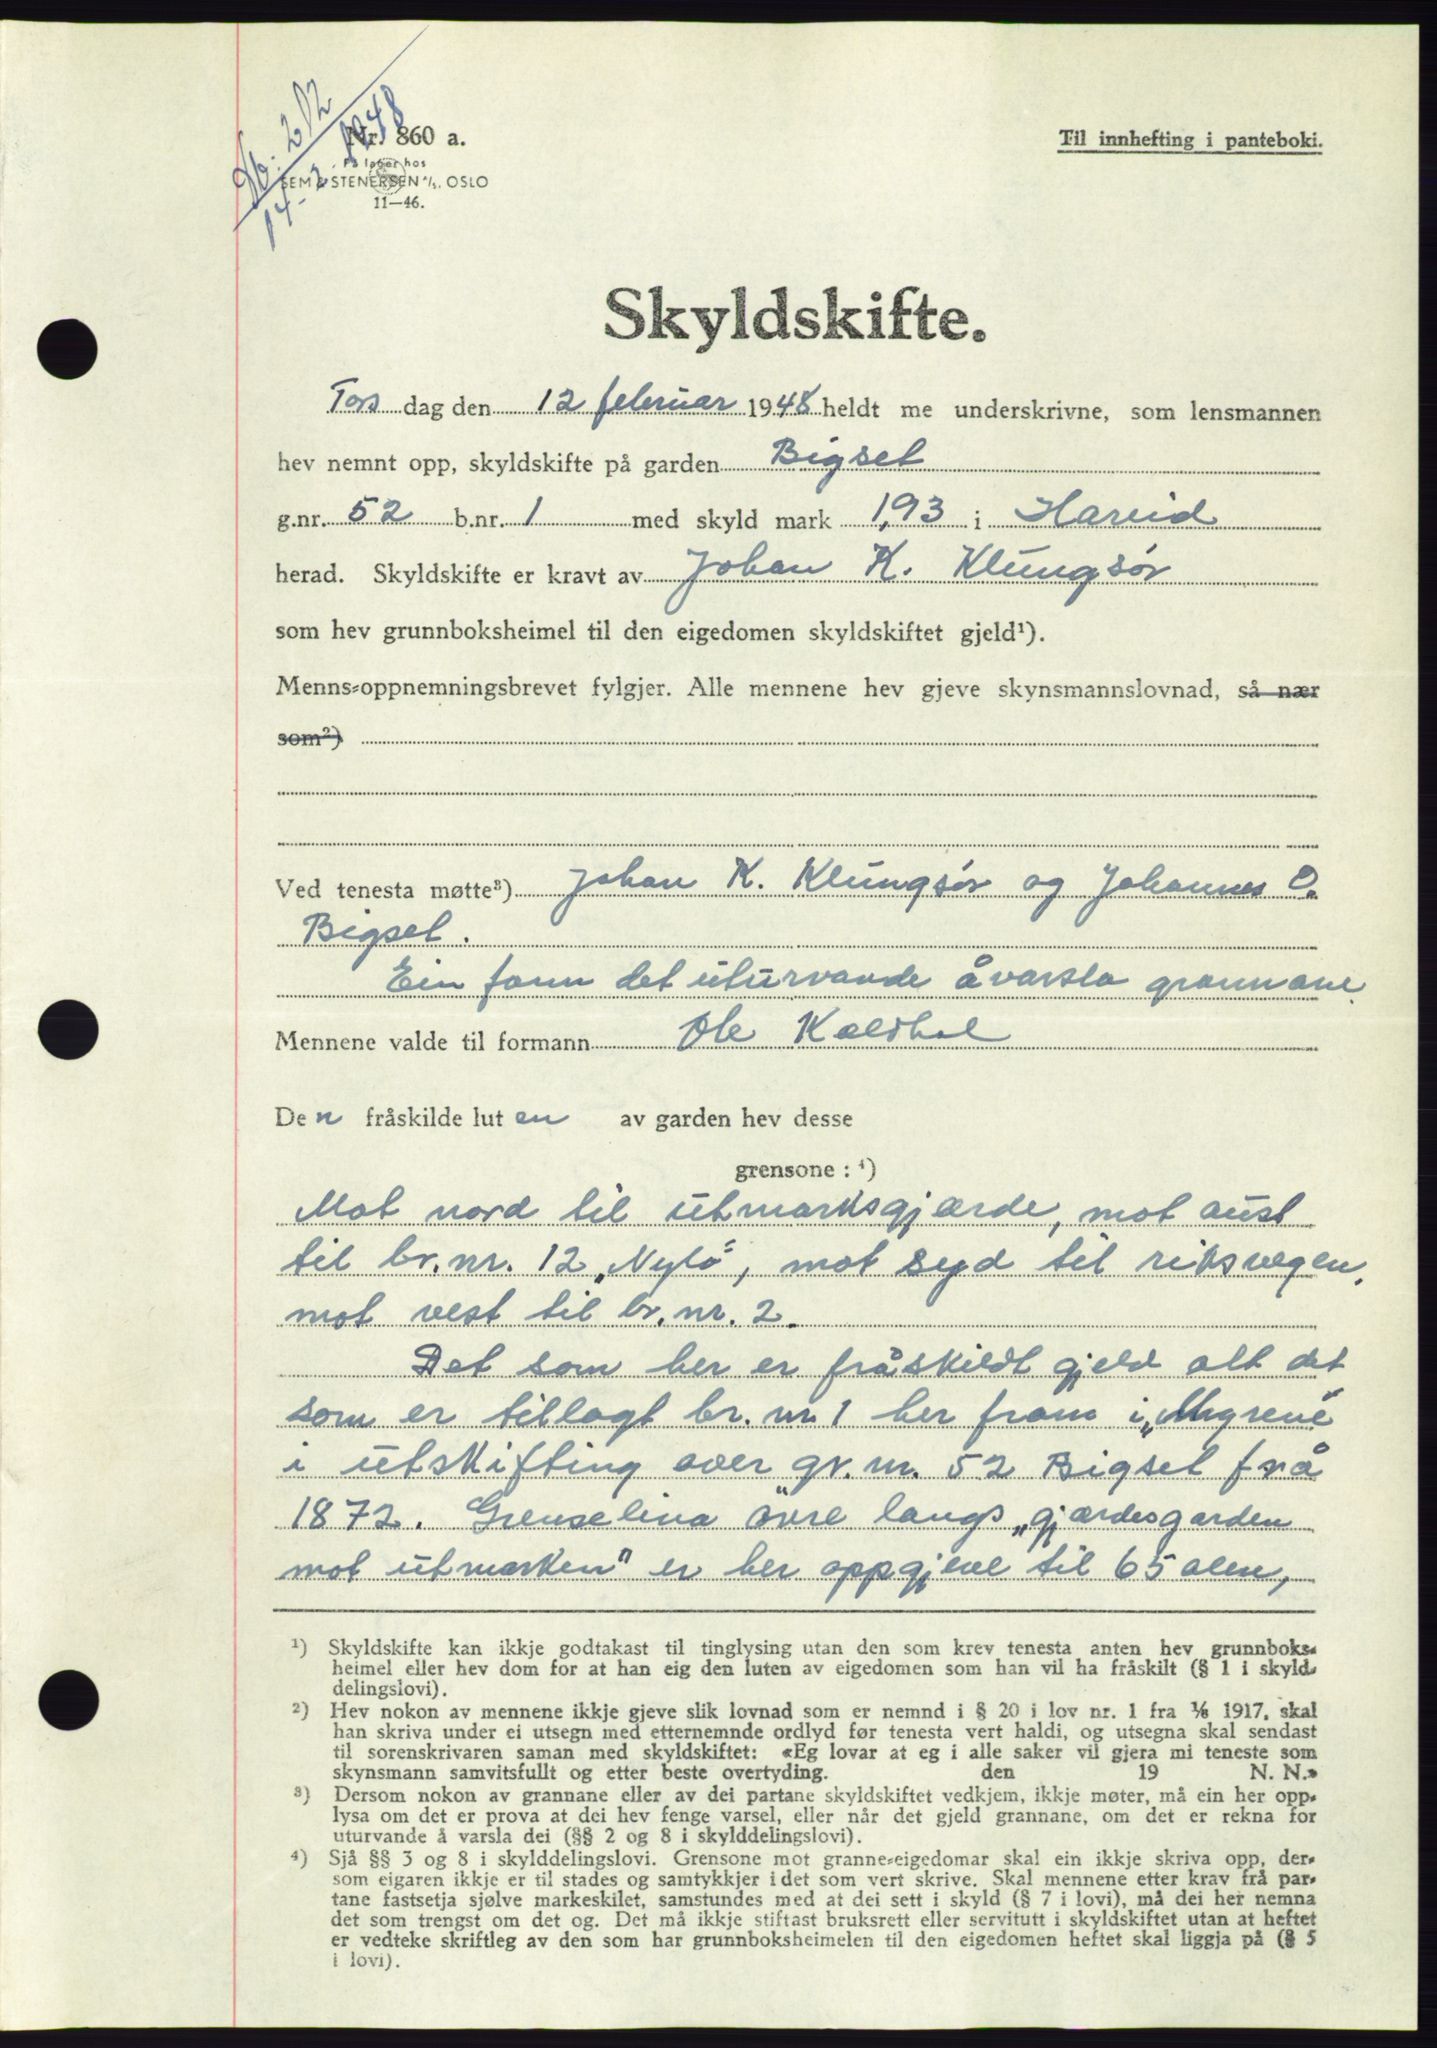 Nr. 860 a.
På lager hos
SEM & STENERSEN A/S, OSLO
11—46.
212
14-2 1948
Til innhefting i panteboki.
Skyldskifte.
Tors dag den 12 februar 1948 heldt me underskrivne, som lensmannen
hev nemnt opp, skyldskifte på garden Bigset
g.nr. 52 b.nr. 1 med skyld mark 1,93 i Hareid
herad. Skyldskifte er kravt av Johan K. Klungsør
som hev grunnboksheimel til den eigedomen skyldskiftet gjeld¹).
Menns-oppnemningsbrevet fylgjer. Alle mennene hev gjeve skynsmannslovnad, så nær
som²)
Ved tenesta møtte³) Johan K. Klungsør og Johannes O.
Bigset.
Ein fann det uturvande å varsla grannane.
Mennene valde til formann Ole Kaldhol
Den fråskilde luten av garden hev desse
grensone : ⁴)
Mot nord til utmarksgjærde, mot aust
til br.nr. 12 „Nylo", mot syd til riksvegen,
mot vest til br.nr. 2.
Det som her er fråskildt gjeld alt det
som er tillagt br. nr. 1 her fram i
i utskifting over gr. nr. 52 Bigset frå
1872. Grenselina øvre langs „gjærdesgarden
mot utmarken" er her oppgjeve til 65 alen,
¹) Skyldskifte kan ikkje godtakast til tinglysing utan den som krev tenesta anten hev grunnboks-
heimel eller hev dom for at han eig den luten av eigedomen som han vil ha fråskilt (§ 1 i skyld-
delingslovi).
²) Hev nokon av mennene ikkje gjeve slik lovnad som er nemnd i § 20 i lov nr. 1 fra 1/6 1917, skal
han skriva under ei utsegn med etternemnde ordlyd før tenesta vert haldi, og utsegna skal sendast
til sorenskrivaren saman med skyldskiftet: «Eg lovar at eg i alle saker vil gjera mi teneste som
skynsmann samvitsfullt og etter beste overtyding. den 19 N. N.»
³) Dersom nokon av grannane eller av dei partane skyldskiftet vedkjem, ikkje møter, må ein her opp-
lysa om det er prova at dei hev fenge varsel, eller når det gjeld grannane, om det er rekna for
uturvande å varsla dei (§§ 2 og 8 i skylddelingslovi).
⁴) Sjå §§ 3 og 8 i skylddelingslovi. Grensone mot granne-eigedomar skal ein ikkje skriva opp, der-
som eigaren ikkje er til stades og samtykkjer i det som vert skrive. Skal mennene etter krav frå par-
tane fastsetja sjølve markeskilet, samstundes med at dei sett i skyld (§ 7 i lovi), må dei her nemna
det som trengst om det og. Det må ikkje stiftast bruksrett eller servitutt i skyldskiftet utan at heftet
er vedteke skriftleg av den som har grunnboksheimelen til den eigedomen heftet skal liggja på (§ 5
i lovi).